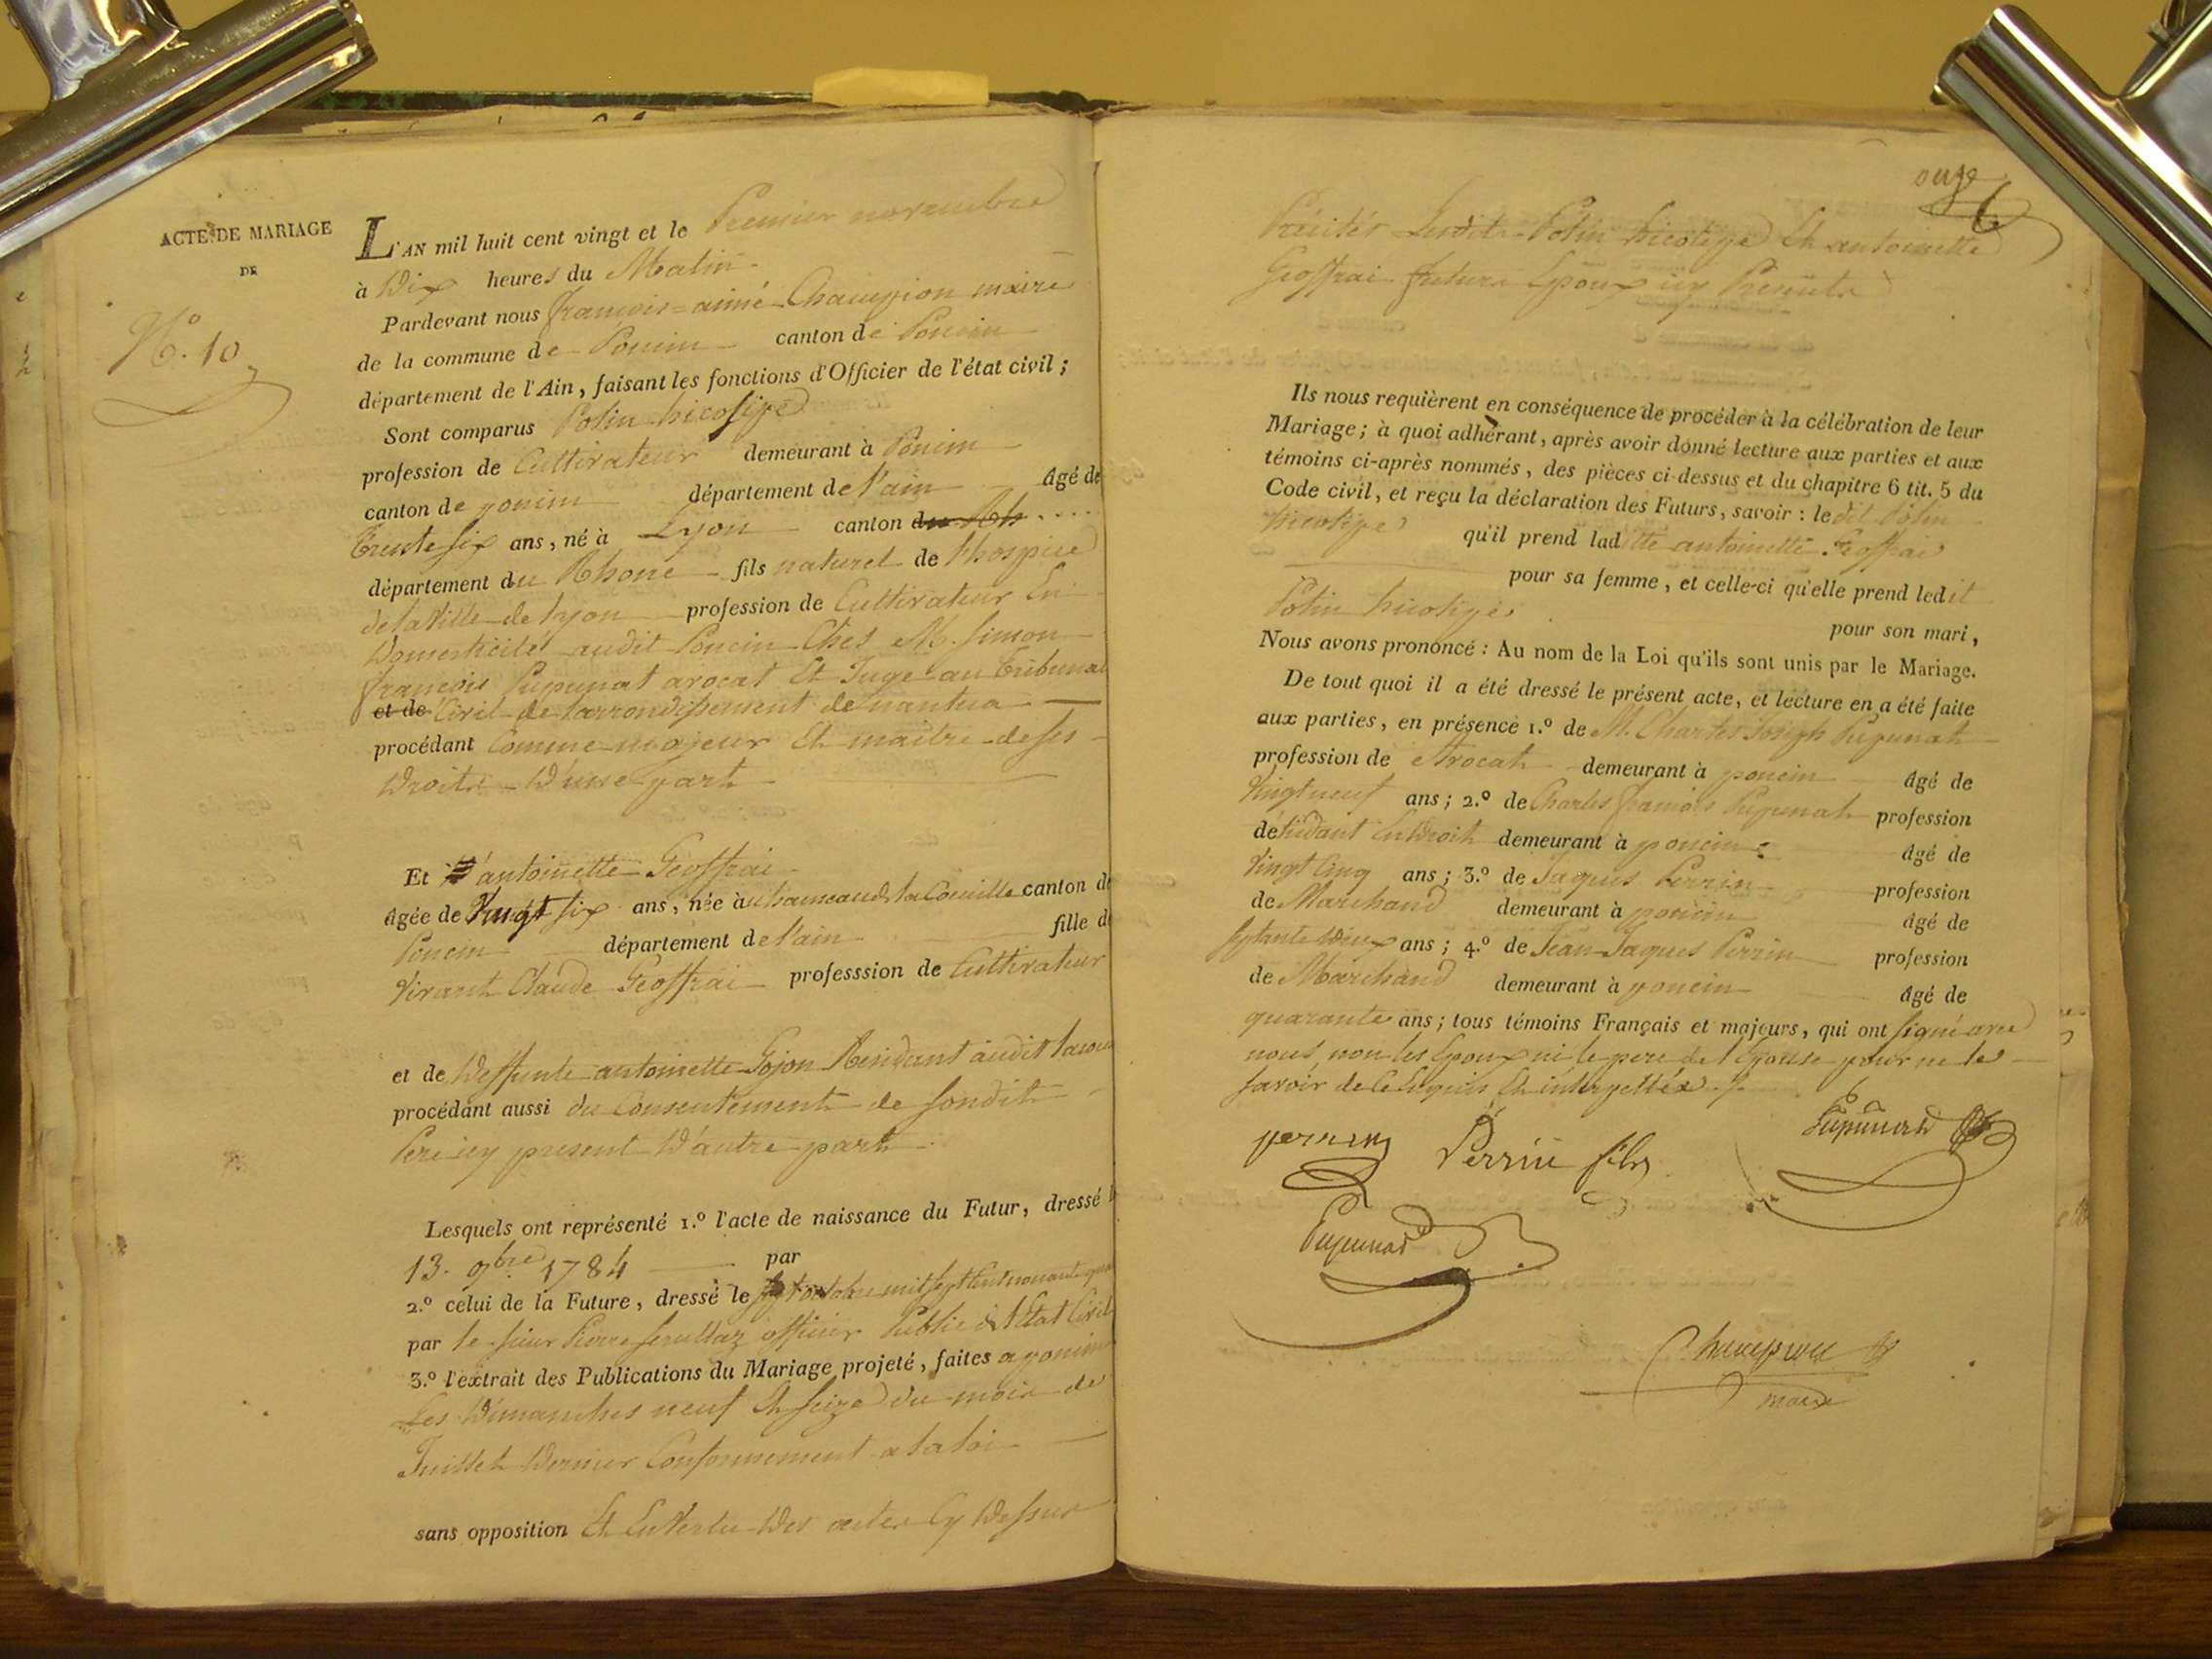 ACTE DE MARIAGE
DE
N.º 10
L'AN mil huit cent vingt et le Premier novembre
à Dix heures du Matin
Pardevant nous françois=aimé Champion maire
de la commune de Poncin canton de Poncin
département de l'Ain, faisant les fonctions d'Officier de l'état civil;
Sont comparus Potin
profession de Cultivateur demeurant à Poncin
canton de poncin département de l'ain âgé de
Trente six ans, né à Lyon canton du Rh
département du Rhone fils naturel de l'hospice
de la Ville de Lyon profession de Cultivateur En
Domesticité audit Poncin Chés M. Simon
françois Pupunat avocat Et Juge au Tribunal
et de Civil de l'arrondissement de nantua
procédant Comme majeur Et maitre de ses
Droits D'une part
Et antoinette Geoffrai
âgée de Vingt six ans, née au hameau de la Coueille canton de
Poncin département de l'ain fille de
Vivant Claude Geoffrai professsion de Cultivateur
et de Deffunte antoinette Gojon Residant audit
procédant aussi du Consentement de sondit
Pere icy present D'autre part
Lesquels ont représenté 1.º l'acte de naissance du Futur, dressé l
13. 9bre 1784 par
2.º celui de la Future, dressé le sept octobre mil sept Cent nonante
par le sieur Pierre officier Public de l'Etat Civil
3.º l'extrait des Publications du Mariage projeté, faites a poncin
Les Dimanches neuf Et seize du mois de
Juillet Dernier Conformement a la loi
sans opposition Et En Vertu Des actes Cy Dessus
onze
Potin Et antoinette
Geoffrai futurs Epoux icy Presents
Ils nous requièrent en conséquence de procéder à la célébration de leur
Mariage; à quoi adhérant, après avoir donné lecture aux parties et aux
témoins ci-après nommés, des pièces ci-dessus et du chapitre 6 tit. 5 du
Code civil, et reçu la déclaration des Futurs, savoir: le dit Potin
qu'il prend laditte antoinette Geoffrai
pour sa femme, et celle-ci qu'elle prend ledit
Potin
pour son mari,
Nous avons prononcé: Au nom de la Loi qu'ils sont unis par le Mariage.
De tout quoi il a été dressé le présent acte, et lecture en a été faite
aux parties, en présence 1.º de M. Charles Joseph Pupunat
profession de Avocat demeurant à poncin âgé de
Vingt neuf ans; 2.º de Charles françois Pupunat profession
d'étudiant En Droit demeurant à poncin âgé de
Vingt Cinq ans; 3.º de Jaques Perrin profession
de Marchand demeurant à poncin âgé de
septante Deux ans; 4.º de Jean Jaques Perrin profession
de Marchand demeurant à poncin âgé de
quarante ans; tous témoins Français et majeurs, qui ont signé avec
nous, non les Epoux ni le pere de l'Epouse pour ne le
savoir de ce Enquis Et interpellés
perrin Perrin fils Pupunat
Pupunat
Champion
maire